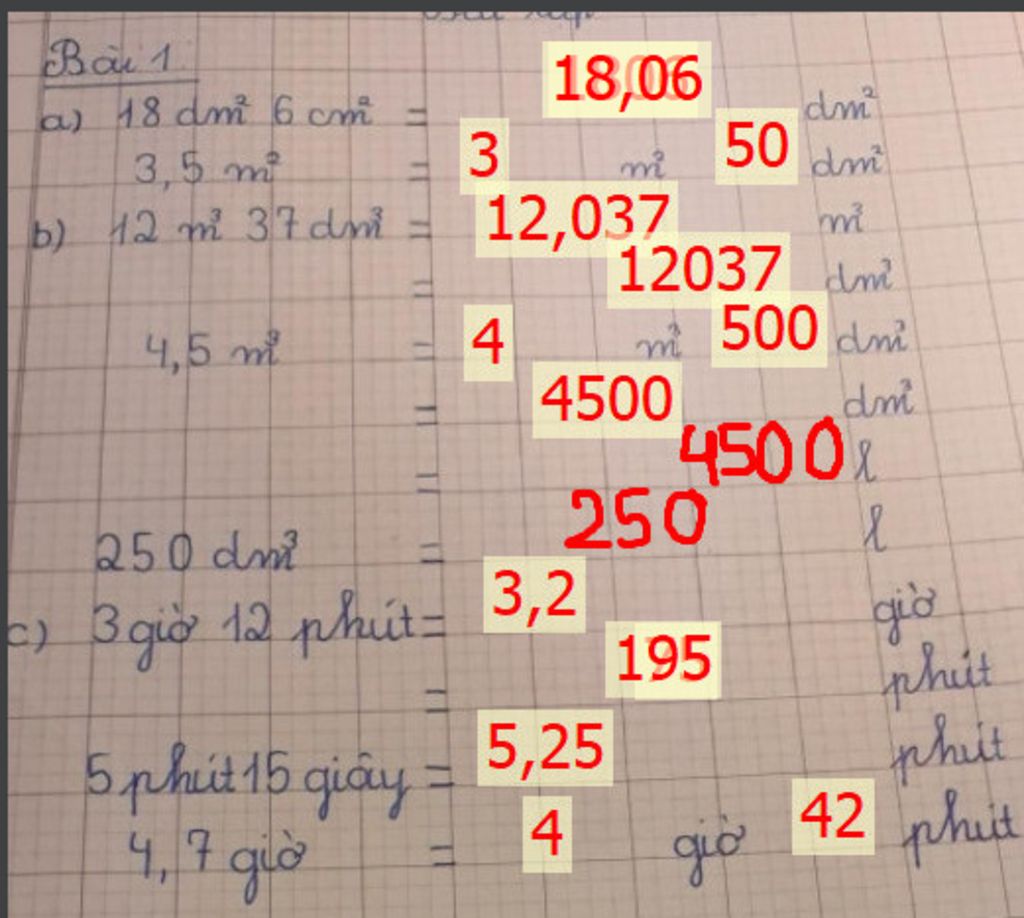 Bài 1
a) 18 dm² 6 cm² = 18,06 dm²
3,5 m² = 3 m² 50 dm²
b) 12 m³ 37 dm³ = 12,037 m³
= 12037 dm³
4,5 m³ = 4 m³ 500 dm³
= 4500 dm³
= 4500 l
250 dm³ = 250 l
c) 3 giờ 12 phút = 3,2 giờ
= 195 phút
5 phút 15 giây = 5,25 phút
4,7 giờ = 4 giờ 42 phút